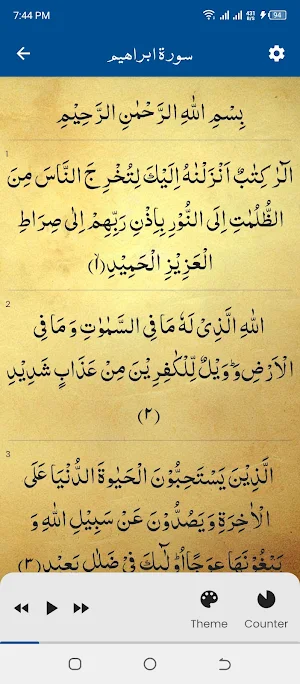 7:44 PM 431 B/s 94
سورۃ ابراھیم
بِسْمِ اللّٰهِ الرَّحْمٰنِ الرَّحِيْمِ
1
الٓرٰ كِتٰبٌ اَنْزَلْنٰهُ اِلَيْكَ لِتُخْرِجَ النَّاسَ مِنَ
الظُّلُمٰتِ اِلَى النُّوْرِ بِاِذْنِ رَبِّهِمْ اِلٰى صِرَاطِ
الْعَزِيْزِ الْحَمِيْدِ(۱)
2
اللّٰهِ الَّذِيْ لَهٗ مَا فِى السَّمٰوٰتِ وَ مَا فِى
الْاَرْضِ وَ وَيْلٌ لِّلْكٰفِرِيْنَ مِنْ عَذَابٍ شَدِيْدِ
(۲)
3
الَّذِيْنَ يَسْتَحِبُّوْنَ الْحَيٰوةَ الدُّنْيَا عَلَى
الْاٰخِرَةِ وَ يَصُدُّوْنَ عَنْ سَبِيْلِ اللّٰهِ وَ
يَبْغُوْنَهَا عِوَجًا اُولٰٓىٕكَ فِيْ ضَلٰلٍ بَعِيْدٍ(۳)
Theme Counter